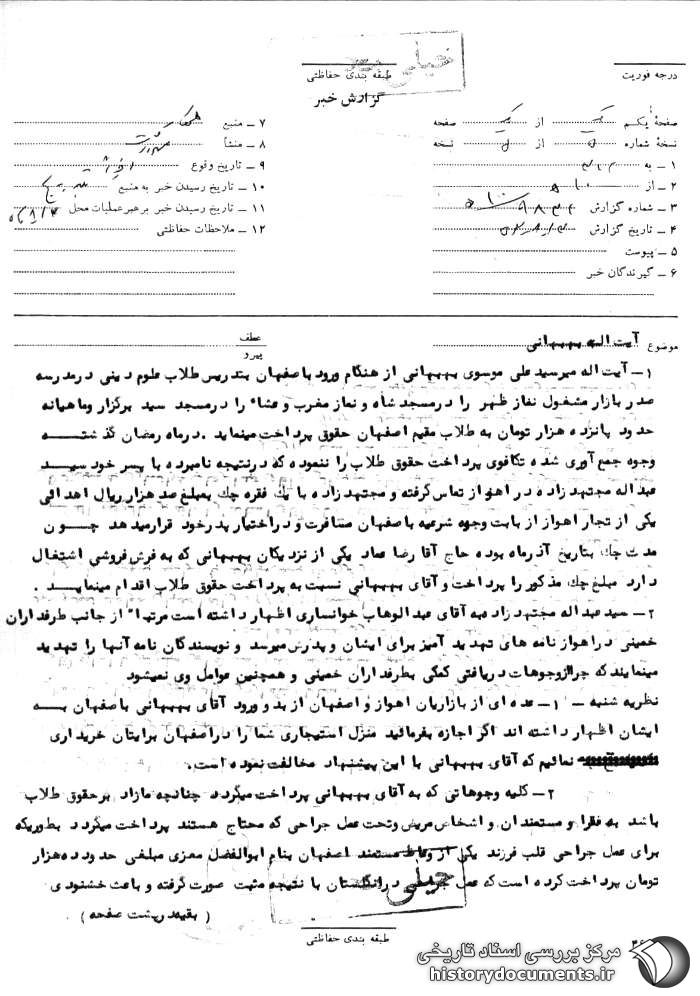 خیلی
درجه فوریت
طبقه بندی حفاظتی
گزارش خبر
صفحهٔ یکم از صفحه
نسخهٔ شماره از نسخه
۱ – به
۲ – از
۳ – شماره گزارش
۴ – تاریخ گزارش
۵ – پیوست
۶ – گیرندگان خبر
۷ – منبع
۸ – منشأ
۹ – تاریخ وقوع
۱۰ – تاریخ رسیدن خبر به منبع
۱۱ – تاریخ رسیدن خبر برهبر عملیات محل
۱۲ – ملاحظات حفاظتی
موضوع آیت اله بهبهانی
عطف
پیرو
۱– آیت اله میرسید علی موسوی بهبهانی از هنگام ورود باصفهان بتدریس طلاب علوم دینی در مدرسه
صدر بازار مشغول نماز ظهر را در مسجد شاه و نماز مغرب و عشاء را در مسجد سید برگزار و ماهیانه
حدود پانزده هزار تومان به طلاب مقیم اصفهان حقوق پرداخت مینماید . در ماه رمضان گذشته
وجوه جمع آوری شده تکافوی پرداخت حقوق طلاب را ننموده که در نتیجه نامبرده با پسر خود سید
عبداله مجتهد زاده در اهواز تماس گرفته و مجتهد زاده با یک فقره چک بمبلغ صد هزار ریال اهدائی
یکی از تجار اهواز از بابت وجوه شرعیه باصفهان مسافرت و در اختیار پدر خود قرار میدهد چون
مدت چک بتاریخ آذرماه بوده حاج آقا رضا عماد یکی از نزدیکان بهبهانی که به فرش فروشی اشتغال
دارد مبلغ چک مذکور را پرداخت و آقای بهبهانی نسبت به پرداخت حقوق طلاب اقدام مینماید .
۲– سید عبداله مجتهد زاده به آقای عبدالوهاب خوانساری اظهار داشته است مرتبا" از جانب طرفداران
خمینی در اهواز نامه های تهدید آمیز برای ایشان و پدرش میرسد و نویسندگان نامه آنها را تهدید
مینمایند که چرا از وجوهات دریافتی کمکی بطرفداران خمینی و همچنین عوامل وی نمیشود
نظریه شنبه – ۱– عده ای از بازاریان اهواز و اصفهان از بدو ورود آقای بهبهانی باصفهان به
ایشان اظهار داشته اند اگر اجازه بفرمائید منزل استیجاری شما را در اصفهان برایتان خریداری
نمائیم که آقای بهبهانی با این پیشنهاد مخالفت نموده است .
۲– کلیه وجوهاتی که به آقای بهبهانی پرداخت میگردد چنانچه مازاد بر حقوق طلاب
باشد به فقرا و مستمندان و اشخاص مریض و تحت عمل جراحی که محتاج هستند پرداخت میگردد بطوریکه
برای عمل جراحی قلب فرزند یکی از وعاظ مستمند اصفهان بنام ابوالفضل معزی مبلغی حدود ده هزار
تومان پرداخت کرده است که عمل جراحی در انگلستان با نتیجه مثبت صورت گرفته و باعث خشنودی
( بقیه در پشت صفحه )
طبقه بندی حفاظتی
مرکز بررسی اسناد تاریخی
historydocuments.ir